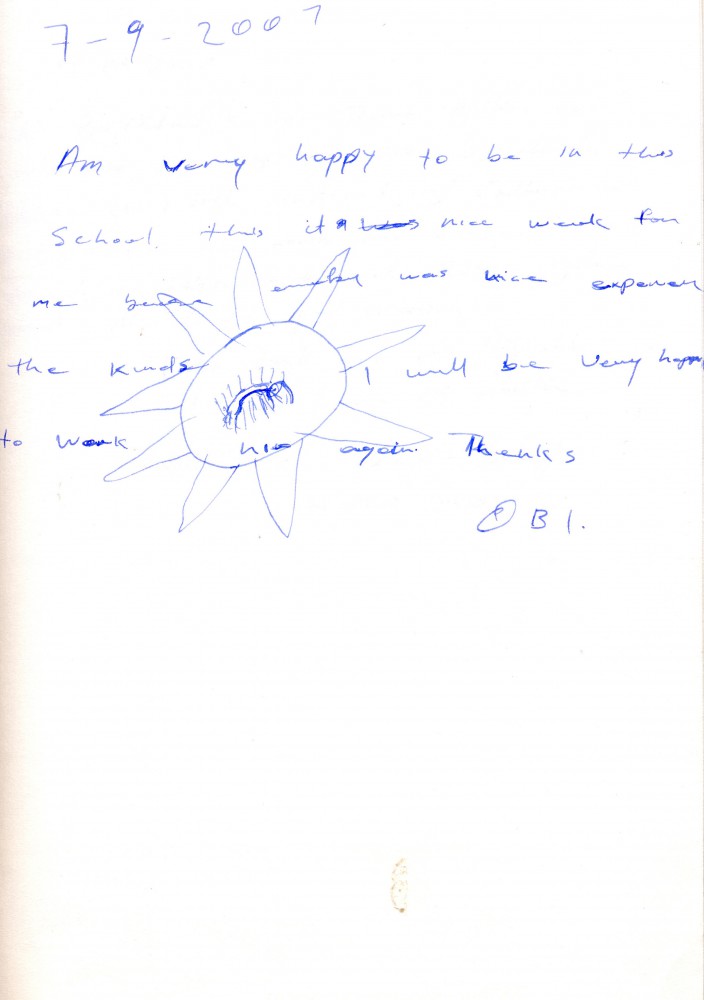 7-9-2007
Am very happy to be in this
School. this it nice week for
me was nice
the kinds I will be very happy
to work again. Thanks
OBI.